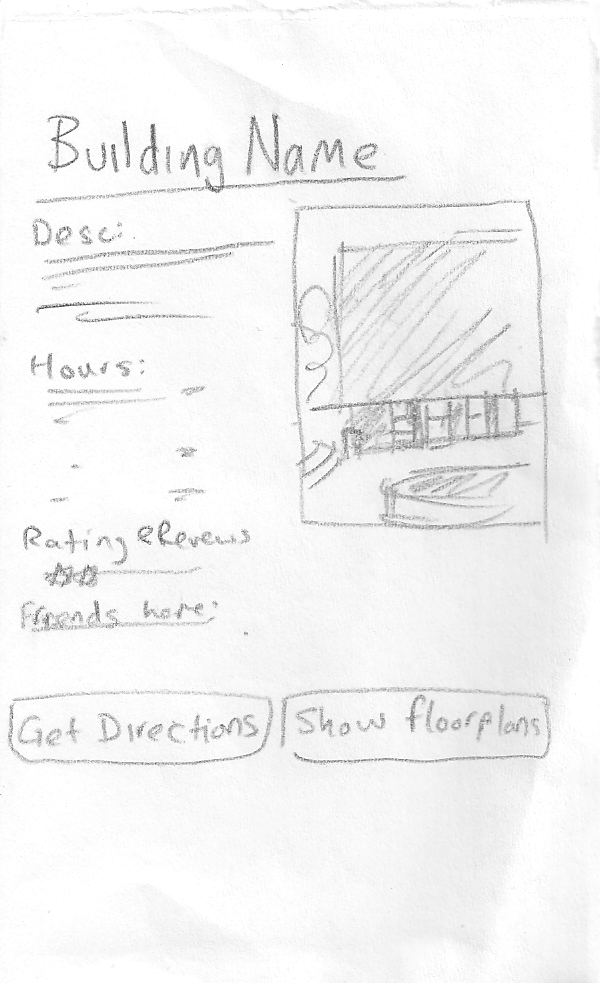 Building Name
Desc:
Hours:
Rating & Revews
Friends here:
Get Directions
Show floorplans